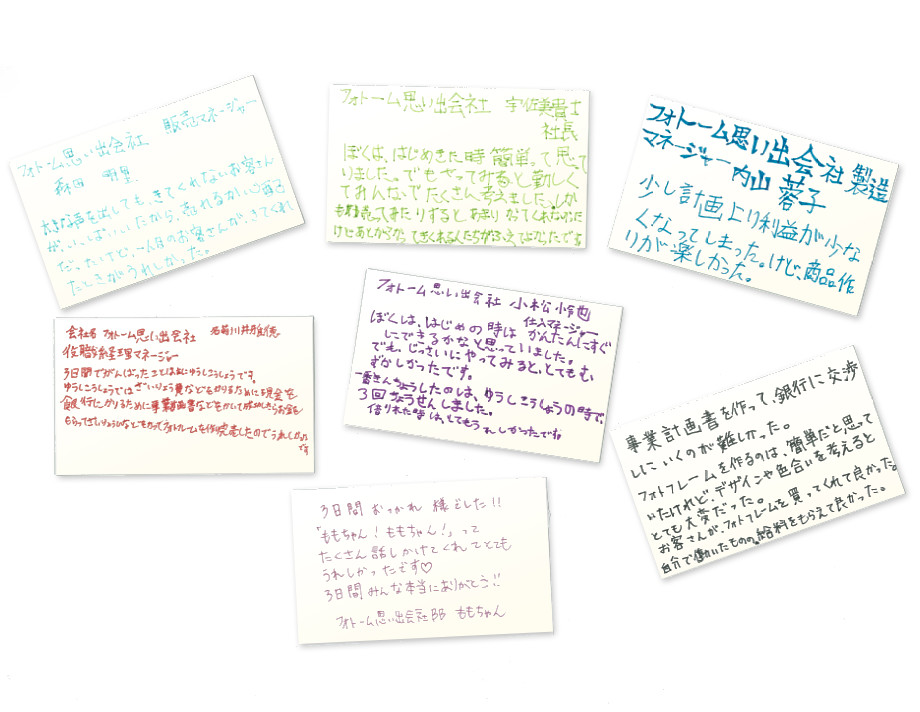 フォトーム思い出会社 販売マネージャー
森田
大きな声を出しても、きてくれないお客さん
がいっぱいいたから、売れるかい心配
だった。けど、一人目のお客さんがきてくれ
たときがうれしかった。
フォトーム思い出会社 宇佐美貴士
社長
ぼくは、はじめきた時簡単って思って
いました。でもやってみると難しく
てみんなでたくさん考えました。しか
けどあとからかってきくれる人たちがふえてよかったです
フォトーム思い出会社 製造
マネージャー 内山 蓉子
少し計画より利益が少な
くなってしまった。けど、商品作
りが楽しかった。
会社名 フォトーム思い出会社 名前 川井雅徳
役職 経理マネージャー
3日間でがんばったことはゆうしこうしょうです。
ゆうしこうしょうではざいりょう費などをかりるために現金を
銀行にかりるために事業計画書などをかいて成功したらお金を
もらってざいりょうなどをかってフォトフレームを作り完売したのでうれしかった
です
フォトーム思い出会社 小松怜也
仕入マネージャー
ぼくは、はじめの時は かんたんにすぐ
にできるかなと思っていました。
でも、じっさいにやってみると、とてもむ
ずかしかったです。
一番きんちょうしたのは、ゆうしこうしょうの時で、
3回ちょうせんしました。
借りれた時は、とてもうれしかったです。
事業計画書を作って、銀行に交渉
しにいくのが難しかった。
フォトフレームを作るのは、簡単だと思って
いたけれど、デザインや色合いを考えると
とても大変だった。
お客さんが、フォトフレームを買ってくれて良かった。
自分で働いたものの、給料をもらえて良かった。
3日間 おつかれ 様でした!!
「ももちゃん!ももちゃん!」って
たくさん 話しかけてくれてとても
うれしかったです♡
3日間 みんな本当にありがとう!!
フォトーム思い出会社BB ももちゃん